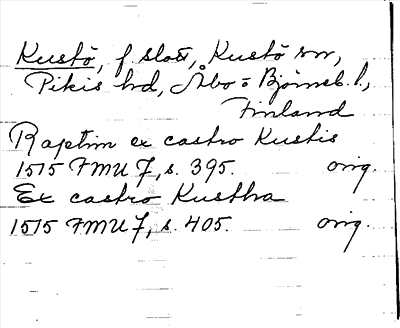 Kustö, f slott, Kustö sn,
Pikis hd, Åbo = Björneb. l.,
Finland
Raptim ex castro Kustis
1515 FMU 7, s. 395. orig.
Ex castro Kustha
1515 FMU 7, s. 405. orig.